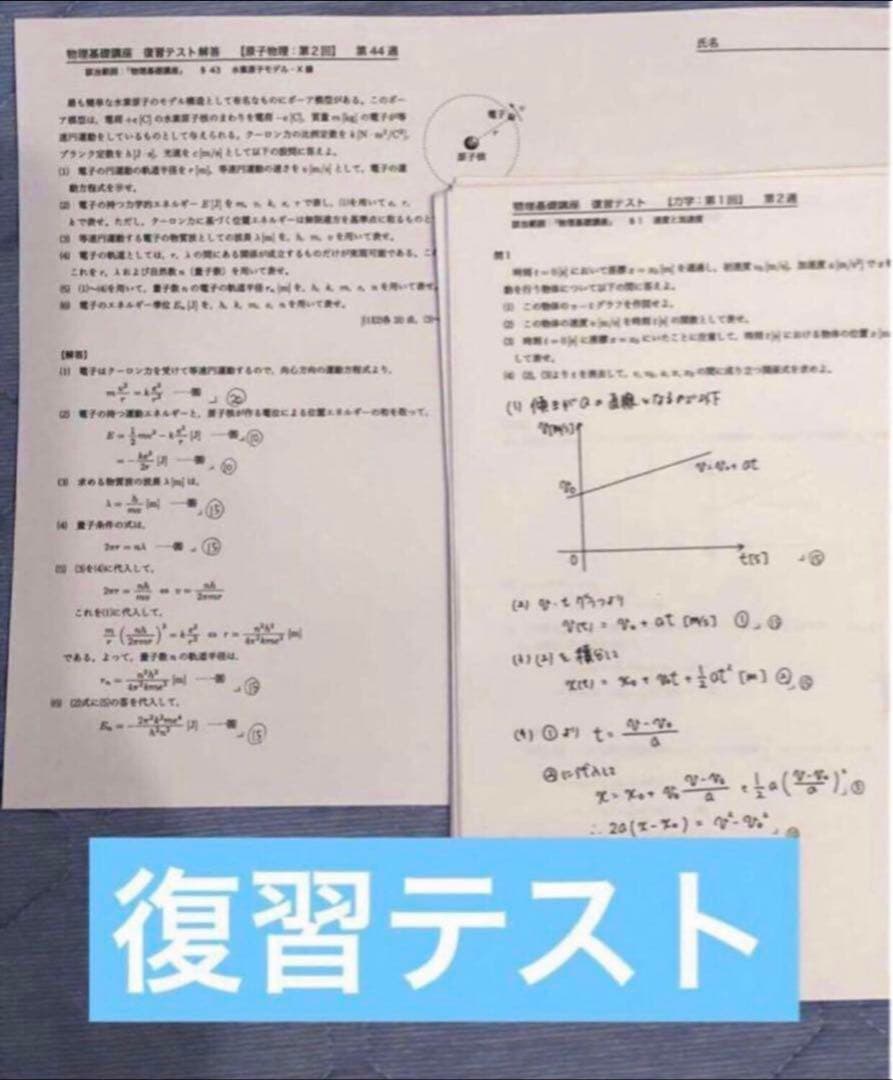 物理基礎講座 復習テスト解答 【原子物理:第2回】 第44週
該当範囲:「物理基礎講座」 §43 水素原子モデル・X線
氏名
最も簡単な水素原子のモデル構造として有名なものにボーア模型がある。このボー
ア模型は、電荷+e[C]の水素原子核のまわりを電荷−e[C]、質量m[kg]の電子が等
速円運動をしているものとして与えられる。クーロン力の比例定数をk[N・m²/C²]、
プランク定数をh[J・s]、光速をc[m/s]として以下の設問に答えよ。
(1) 電子の円運動の軌道半径をr[m]、等速円運動の速さをv[m/s]として、電子の運
動方程式を示せ。
(2) 電子の持つ力学的エネルギーE[J]をm, v, k, e, rで表し、(1)を用いてe, r,
kで表せ。ただし、クーロン力に基づく位置エネルギーは無限遠方を基準点に取るものと
(3) 等速円運動する電子の物質波としての波長λ[m]を、h, m, vを用いて表せ。
(4) 電子の軌道としては、r, λの間にある関係が成立するものだけが実現可能である。こ
これをr, λおよび自然数n(量子数)を用いて表せ。
(5) (1)~(4)を用いて、量子数nの電子の軌道半径rₙ[m]を、h, k, m, e, nを用いて表せ。
(6) 電子のエネルギー準位Eₙ[J]を、h, k, m, e, nを用いて表せ。
電子
r
原子核
【解答】
(1) 電子はクーロン力を受けて等速円運動するので、向心方向の運動方程式より、
m v²/r = k e²/r² ―答 20
(2) 電子の持つ運動エネルギーと、原子核が作る電位による位置エネルギーの和を取って、
E = 1/2 mv² − k e²/r [J] ―答 10
= − ke²/2r [J] ―答 10
(3) 求める物質波の波長λ[m]は、
λ = h/mv [m] ―答 15
(4) 量子条件の式は、
2πr = nλ ―答 15
(5) (3)を(4)に代入して、
2πr = nh/mv ⇔ v = nh/2πmr
これを(1)に代入して、
m/r (nh/2πmr)² = k e²/r² ⇔ r = n²h²/4π²kme² [m]
である。よって、量子数nの軌道半径は、
rₙ = n²h²/4π²kme² [m] ―答 15
(6) (2)式に(5)の答を代入して、
Eₙ = − 2π²k²me⁴/h²n² [J] ―答 15
物理基礎講座 復習テスト 【力学:第1回】 第2週
該当範囲:「物理基礎講座」 §1 速度と加速度
問1
時刻t=0[s]において座標x=x₀[m]を通過し、初速度v₀[m/s]、加速度a[m/s²]でx
動を行う物体について以下の問に答えよ。
(1) この物体のv−tグラフを作図せよ。
(2) この物体の速度v[m/s]を時刻t[s]の関数として表せ。
(3) 時刻t=0[s]に座標x=x₀にいたことに注意して、時刻t[s]における物体の位置x
して表せ。
(4) (2), (3)よりtを消去して、v, v₀, a, x, x₀の間に成り立つ関係式を求めよ。
(1) 傾きがaの直線となるので以下
v[m/s]
v₀
v=v₀+at
0
t[s]
15
(2) v-tグラフより
v(t) = v₀ + at [m/s] ①
(3) (2)を積分して
x(t) = x₀ + v₀t + 1/2 at² [m] ②
(4) ①より t = (v−v₀)/a
②に代入して
x = x₀ + v₀ (v−v₀)/a + 1/2 a((v−v₀)/a)²
∴ 2a(x−x₀) = v²−v₀²
復習テスト